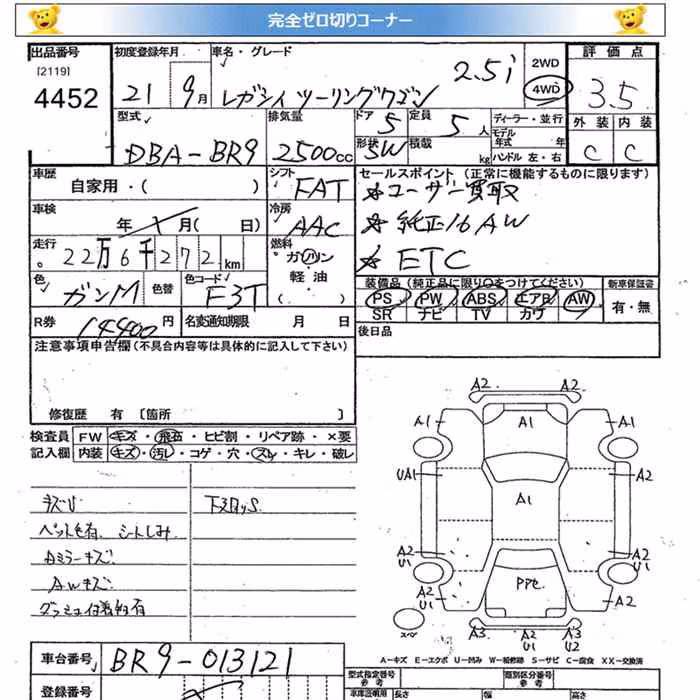 完全ゼロ切りコーナー
出品番号 初度登録年月 車名・グレード 2WD 評価点
[2119]
4452 21 9月 レガシィ ツーリングワゴン 2.5i 4WD 3.5
型式 排気量 ドア 5 定員 5人 ディーラー・並行 外装 内装
DBA-BR9 2500cc 形状 SW 積載 kg モデル年式 年 ハンドル 左・右 C C
車歴 シフト セールスポイント (正常に機能するものに限ります)
自家用・( ) FAT ☆ユーザー買取
車検 冷房 ☆純正16AW
年 月( 日) AAC ☆ETC
走行 22万6千272km 燃料 ガソリン
軽油
( )
色 ガンM 色替 色コード F3T 装備品 (純正品に限り○をつけてください) 新車保証書
PS PW ABS エアB AW 有・無
SR ナビ TV カワ
R券 14400円 名変通知期限 月 日 後日品
注意事項申告欄(不具合内容等は具体的に記入して下さい)
修復歴 有 [箇所 ]
検査員 FW キズ・飛石・ヒビ割・リペア跡・×要
記入欄 内装 キズ・汚レ・コゲ・穴・スレ・キレ・破レ
キズU 下廻りS
ペット毛有、シートしみ
Aミラーキズ
AWキズ
ダッシュ付着物有
A2 A2
A1 A1 A1
UA1 A1 A2
A2 U1 A2 U1
A2 U1 PPセ A2
スペ A3 A2 U1 A3 U2
A-キズ E-エクボ U-凹み W-補修跡 S-サビ C-腐食 XX-交換済
車台番号 BR9-013121
登録番号 型式指定番号 参考 類別区分番号 参考
車庫証明用 長さ 幅 高さ